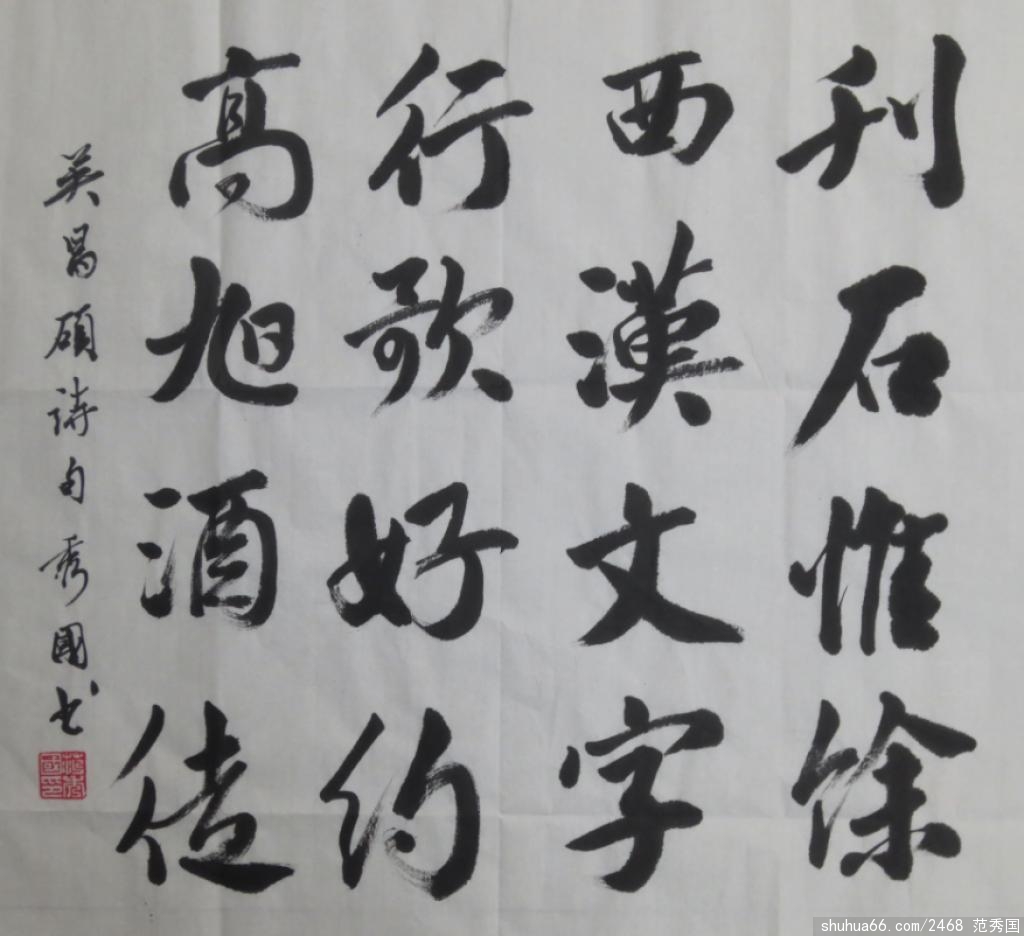 刊石惟馀
西漢文字
行歌好約
高旭酒徒
吴昌碩詩句 秀國书
范秀國印
shuhua66.com/2468 范秀国